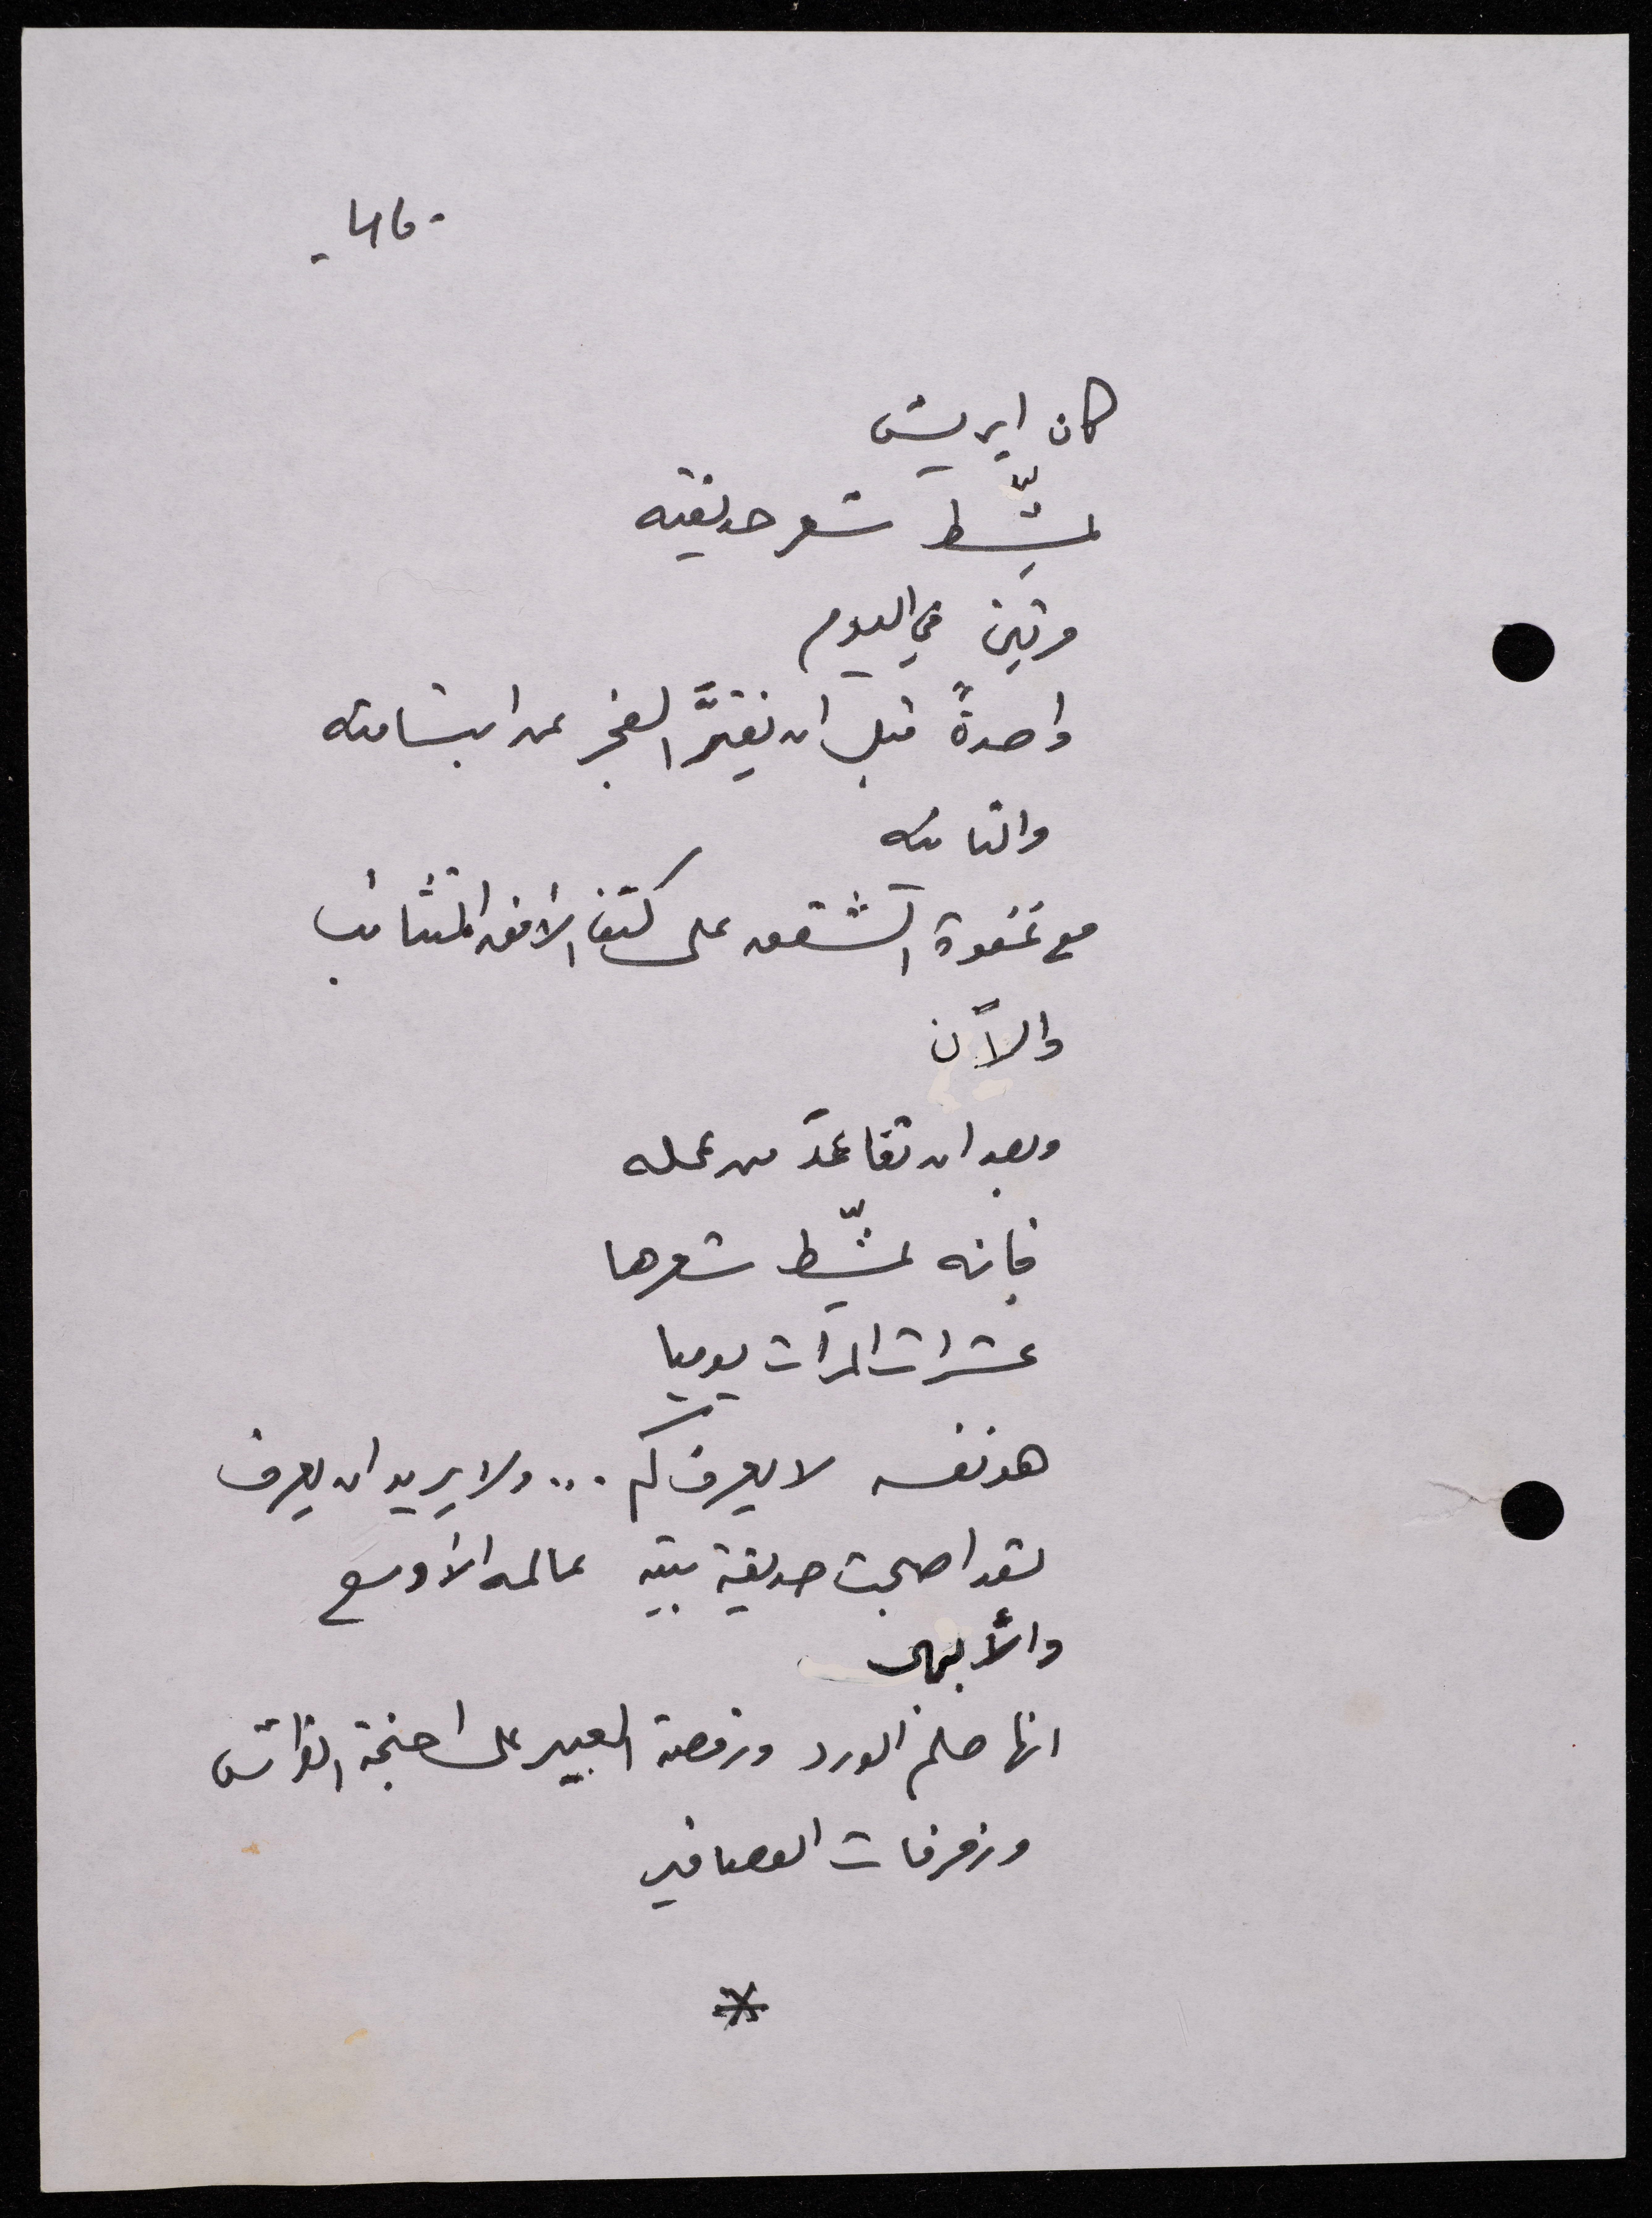 -46-
كان ايريش
يمشّط شعر حديقته
مرتين في اليوم
واحدةً قبل ان يفترَّ الفجر عن ابتسامته
والثانية
مع غفوة الشفق على كتف الافق المتثائب
والآن
وبعد ان تقاعدَ من عمله
فانه يمشّط شعرها
عشرات المرات يوميا
هو نفسه لا يعرف كم ... ولا يريد ان يعرف
لقد اصبحت حديقة بيته عالمه الأوسع
والأبهى
انها حلم الورد ورقصة العبير على اجنحة الفراش
وزقزقات العصافير
*